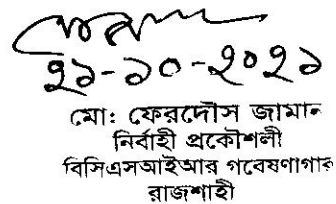 ২১-১০-২০২১
মো: ফেরদৌস জামান
নির্বাহী প্রকৌশলী
বিসিএসআইআর গবেষণাগার
রাজশাহী